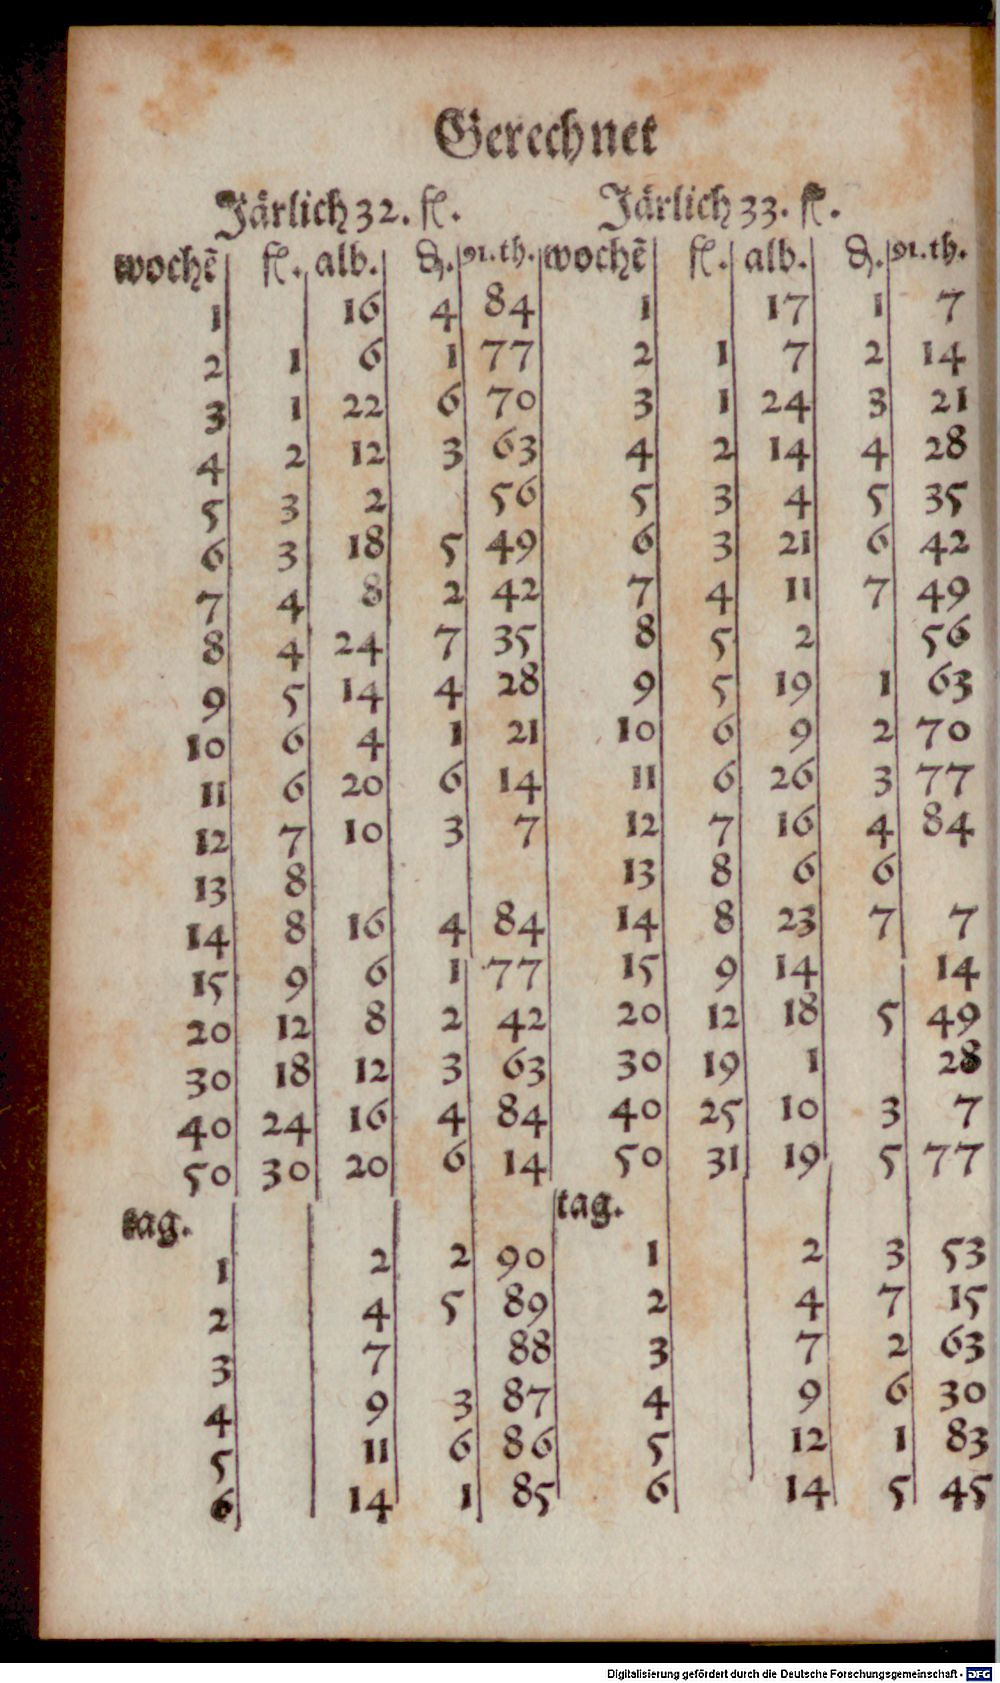 Gerechnet
Järlich 32. fl. Järlich 33. fl.
wochẽ fl. alb. ₰. 91.th. wochẽ fl. alb. ₰. 91.th.
1 16 4 84 1 17 1 7
2 1 6 1 77 2 1 7 2 14
3 1 22 6 70 3 1 24 3 21
4 2 12 3 63 4 2 14 4 28
5 3 2 56 5 3 4 5 35
6 3 18 5 49 6 3 21 6 42
7 4 8 2 42 7 4 11 7 49
8 4 24 7 35 8 5 2 56
9 5 14 4 28 9 5 19 1 63
10 6 4 1 21 10 6 9 2 70
11 6 20 6 14 11 6 26 3 77
12 7 10 3 7 12 7 16 4 84
13 8 13 8 6 6
14 8 16 4 84 14 8 23 7 7
15 9 6 1 77 15 9 14 14
20 12 8 2 42 20 12 18 5 49
30 18 12 3 63 30 19 1 28
40 24 16 4 84 40 25 10 3 7
50 30 20 6 14 50 31 19 5 77
tag. tag.
1 2 2 90 1 2 3 53
2 4 5 89 2 4 7 15
3 7 88 3 7 2 63
4 9 3 87 4 9 6 30
5 11 6 86 5 12 1 83
6 14 1 85 6 14 5 45
Digitalisierung gefördert durch die Deutsche Forschungsgemeinschaft - DFG